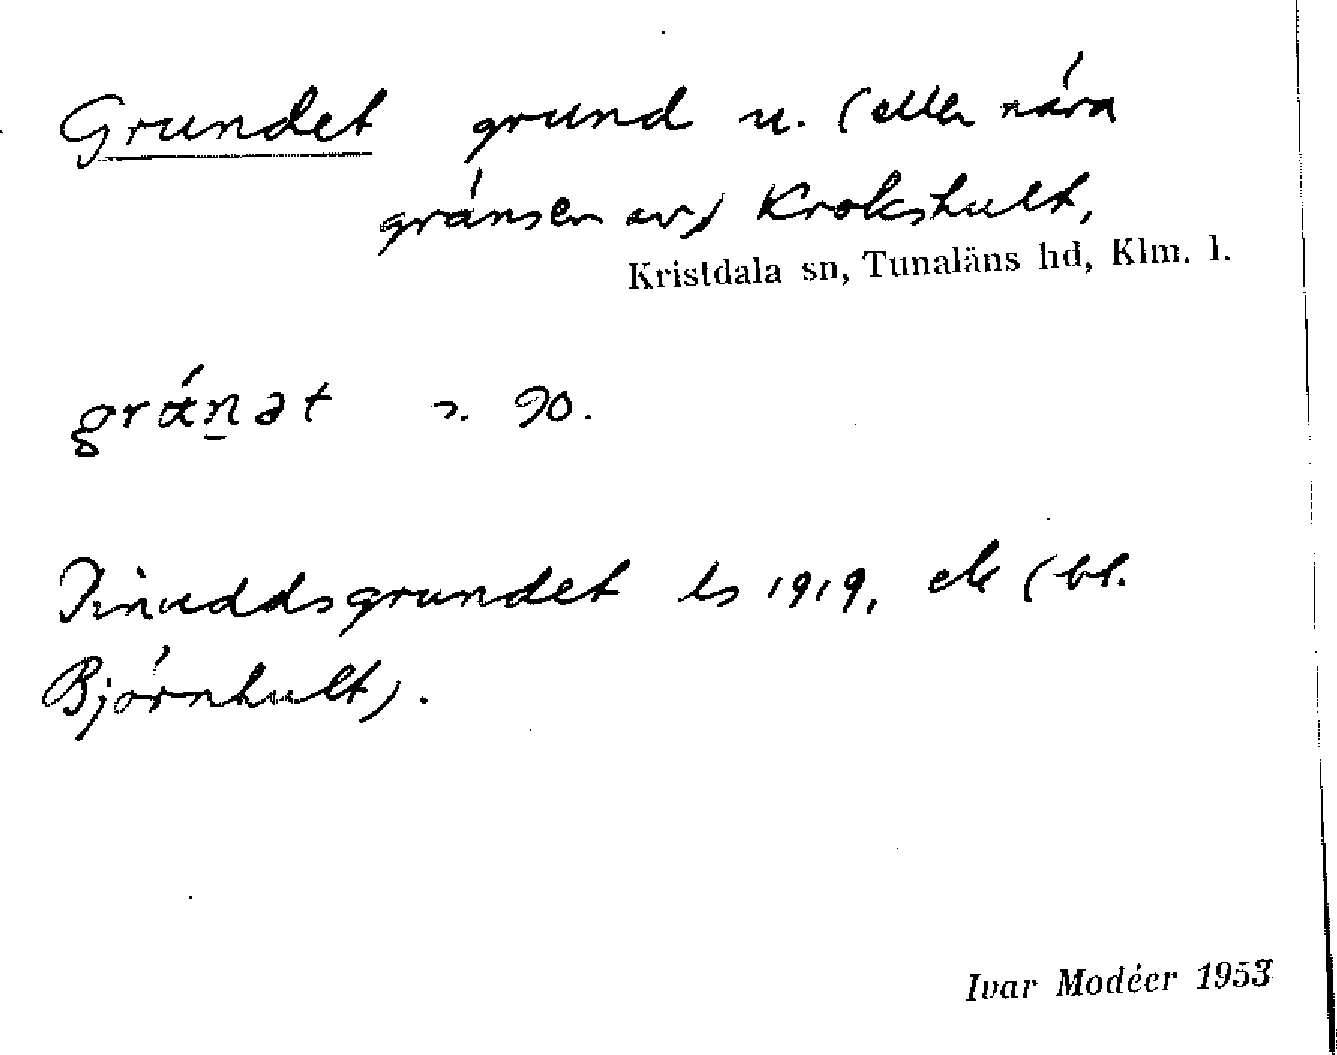 Grundet grund u. (eller nära
gränsen av) Krokshult,
Kristdala sn, Tunaläns hd, Klm. l.
90.
grundet ls 1919, ek (bl.
Björnhult).
Ivar Modéer 1953